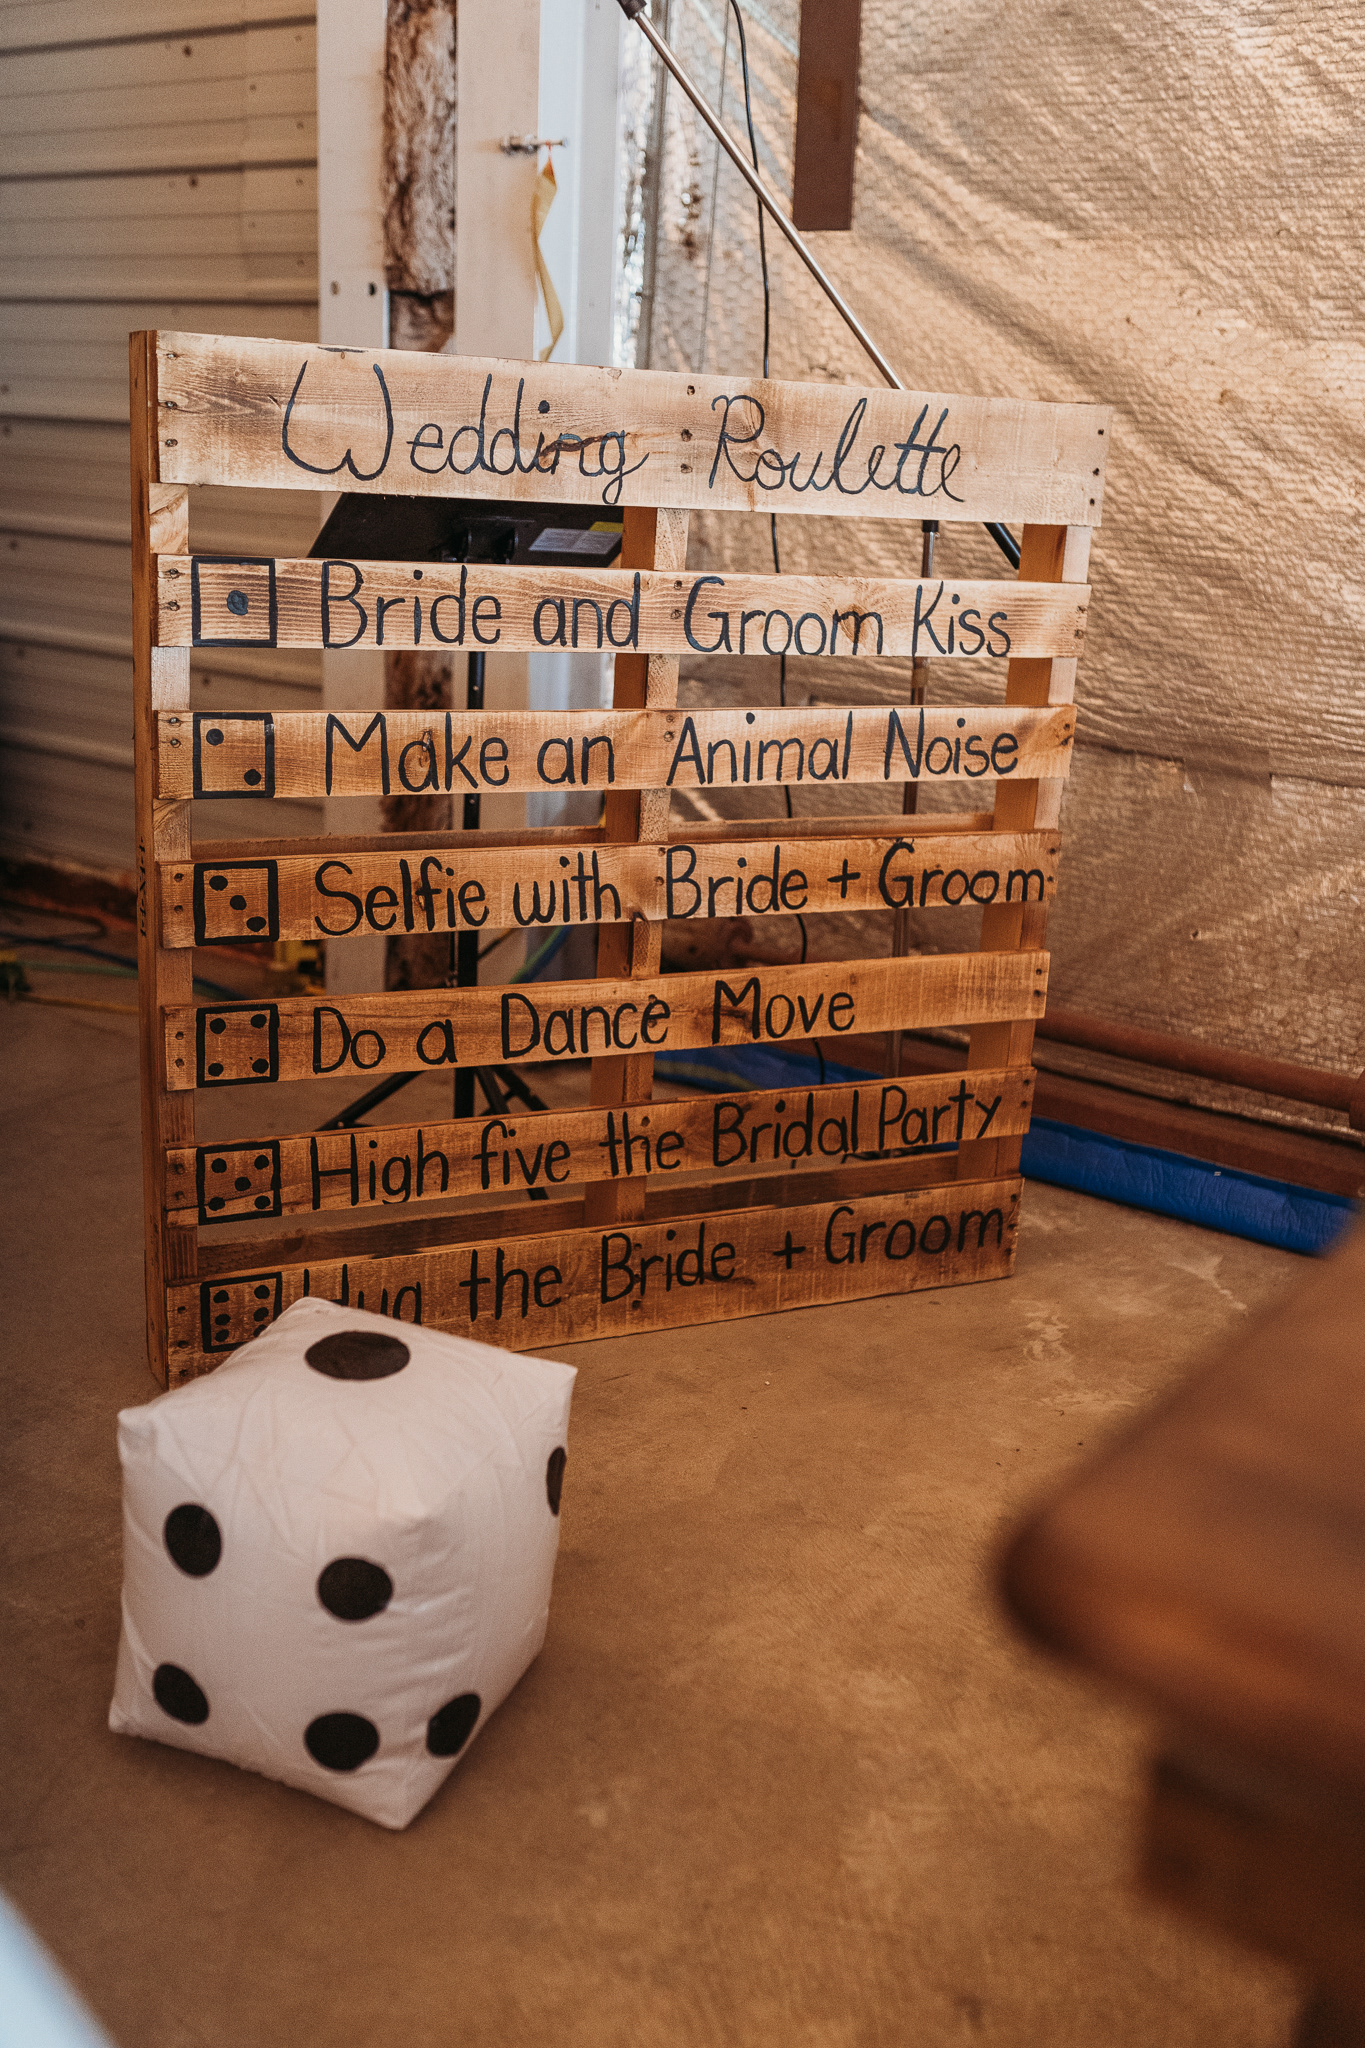 Wedding Roulette
Bride and Groom Kiss
Make an Animal Noise
Selfie with Bride + Groom
Do a Dance Move
High five the Bridal Party
Hug the Bride + Groom